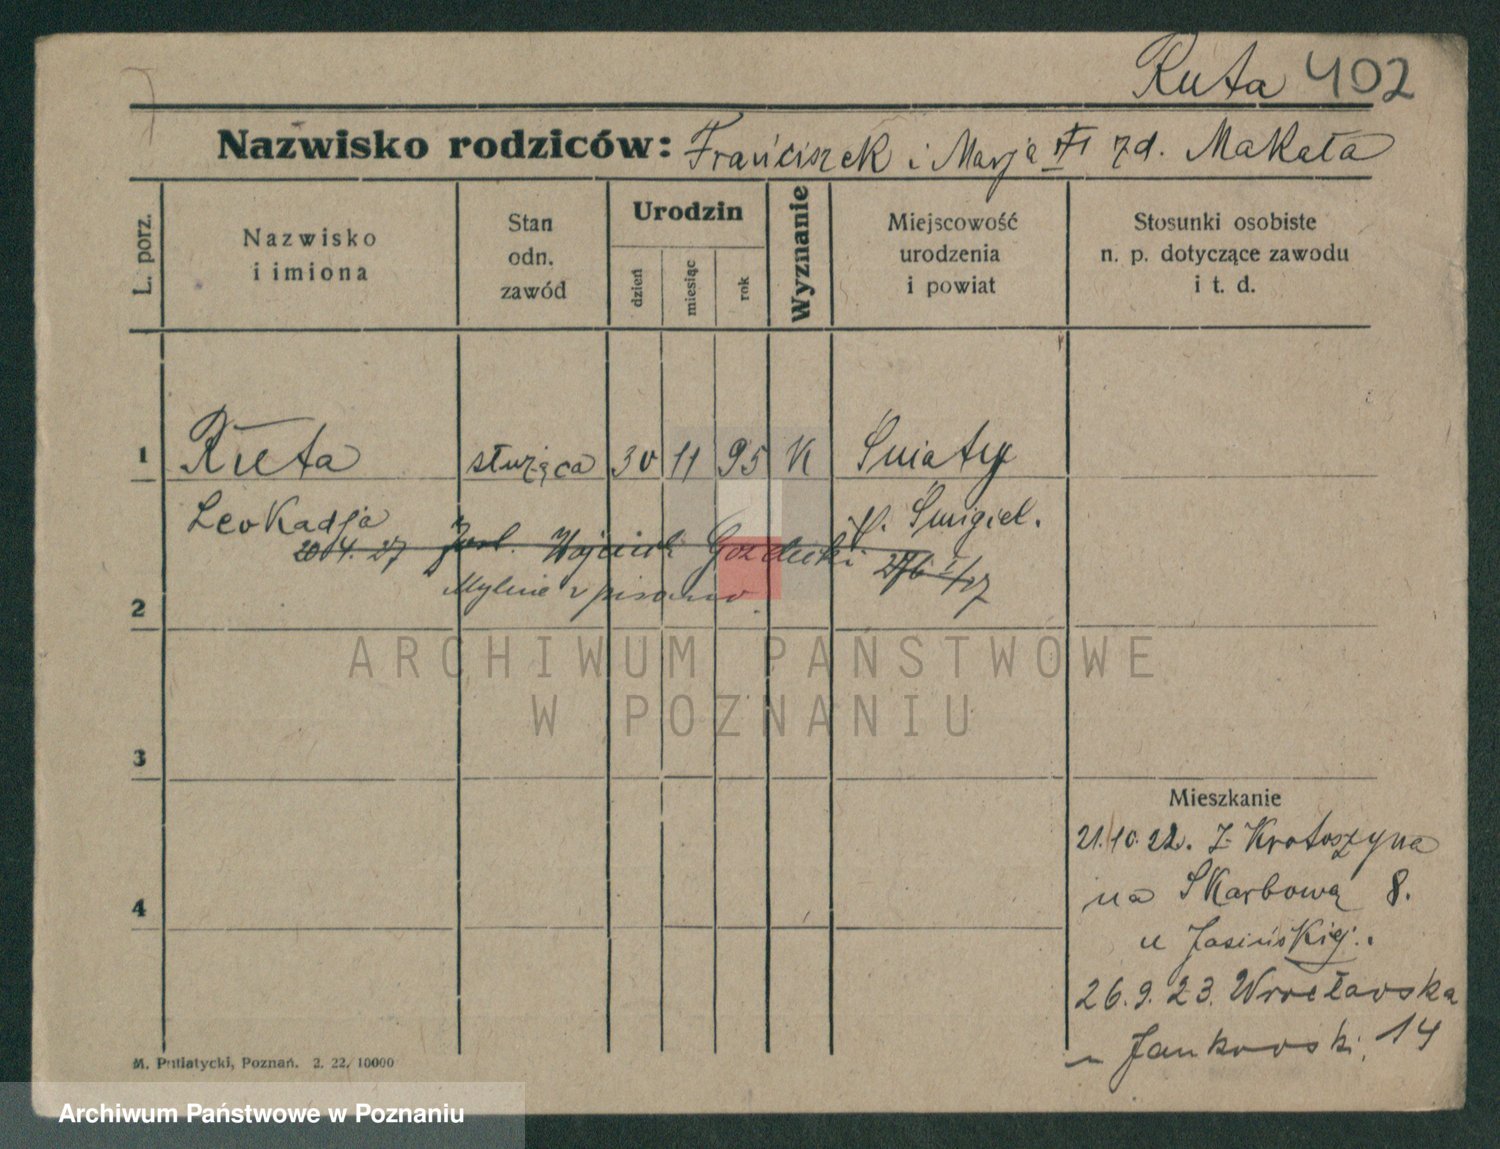 Ruta 402
Nazwisko rodziców: Franciszek i Marja zd. Makała
L. porz.
Nazwisko
i imiona
Stan
odn.
zawód
Urodzin
dzień
miesiąc
rok
Wyznanie
Miejscowość
urodzenia
i powiat
Stosunki osobiste
n. p. dotyczące zawodu
i t. d.
1 Ruta służąca 30 11 95 K Śniaty
Leokadja p. Śmigiel.
20 4. 27 Wojciech
Mylnie wpisano.
2
3
4
Mieszkanie
21.10.22. z Krotoszyna
na Skarbową 8.
u Jasińskiej.
26.9.23. Wrocławska
u Jankowski, 14
M. Putiatycki, Poznań. 2. 22. 10000
ARCHIWUM PAŃSTWOWE
W POZNANIU
Archiwum Państwowe w Poznaniu